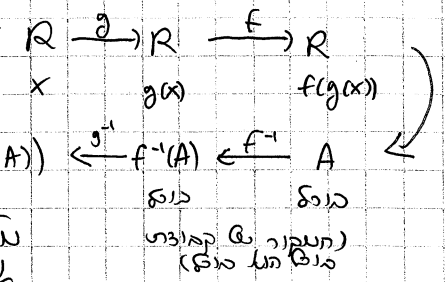 R →g R →f R
x g(x) f(g(x))
A)) ←g⁻¹ f⁻¹(A) ←f⁻¹ A
בורל בורל
(המקור של קבוצת
בורל הוא בורל)